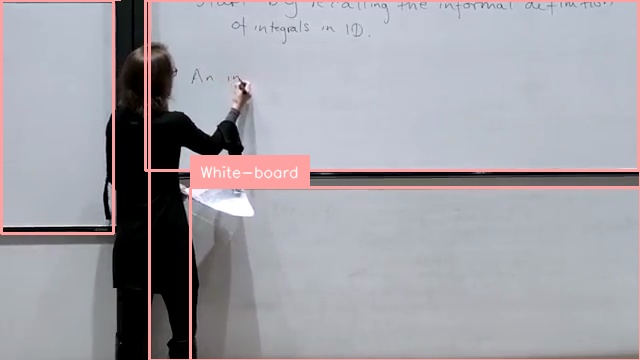 Start by recalling the informal definition
of integrals in 1D.
An in
White-board